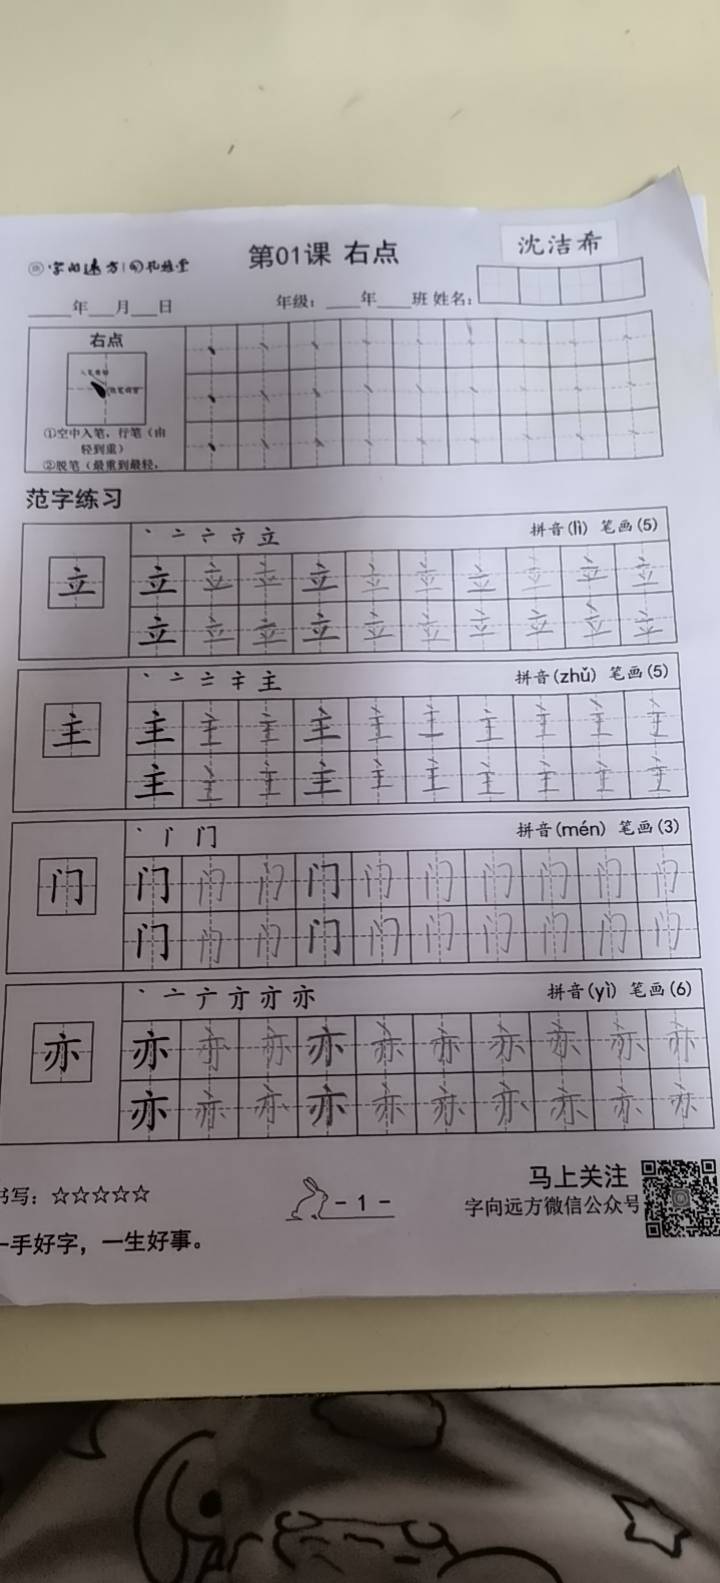 第01课 右点
沈洁希
年 月 日
年级： 年 班 姓名：
右点
①空中入笔，行笔（由
轻到重）
②脱笔（最重到最轻，
范字练习
立 拼音(lì) 笔画(5)
立 立 立 立 立 立 立 立 立 立 立
立 立 立 立 立 立 立 立 立 立
主 拼音(zhǔ) 笔画(5)
主 主 主 主 主 主 主 主 主 主 主
主 主 主 主 主 主 主 主 主 主
门 拼音(mén) 笔画(3)
门 门 门 门 门 门 门 门 门 门 门
门 门 门 门 门 门 门 门 门 门
亦 拼音(yì) 笔画(6)
亦 亦 亦 亦 亦 亦 亦 亦 亦 亦 亦
亦 亦 亦 亦 亦 亦 亦 亦 亦 亦
书写：☆☆☆☆☆
- 1 -
马上关注
字向远方微信公众号
一手好字，一生好事。